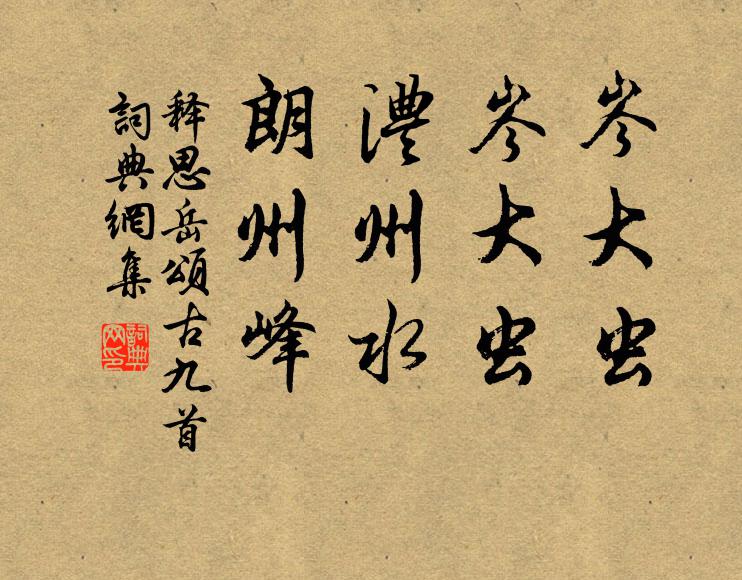 岑大虫
岑大虫
澧州水
朗州峰
释思岳頌古九首
詞典網集
詞典网印